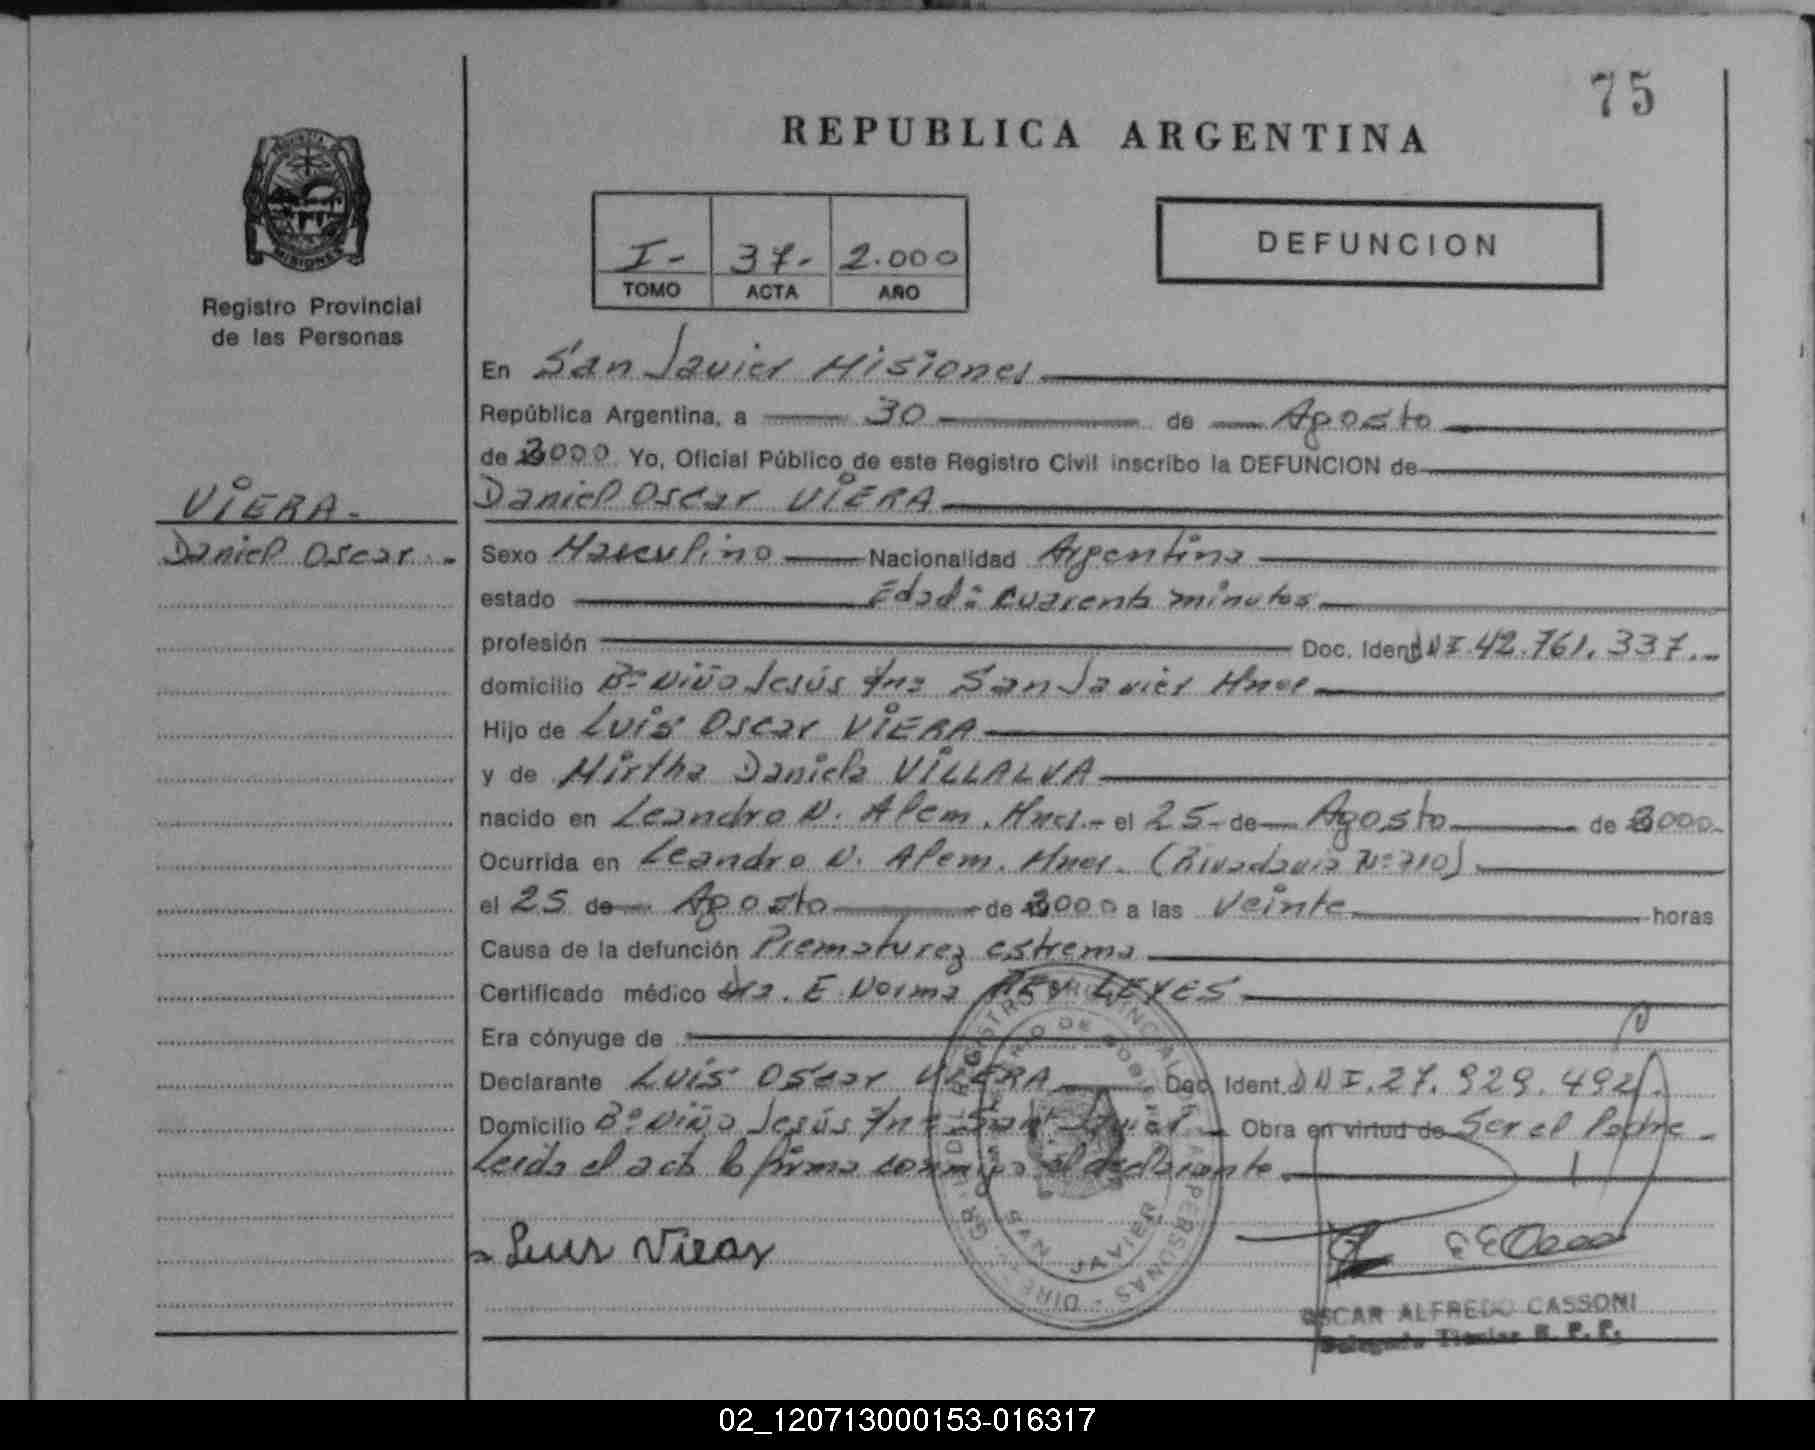 75
REPUBLICA ARGENTINA
MISIONES
Registro Provincial
de las Personas
I- 37- 2.000
TOMO ACTA AÑO
DEFUNCION
En San Javier Misiones
República Argentina, a 30 de Agosto
de 2000 Yo, Oficial Público de este Registro Civil inscribo la DEFUNCION de
VIERA-
Daniel Oscar VIERA
Daniel Oscar.-
Sexo Masculino Nacionalidad Argentina
estado Edad: cuarenta minutos
profesión Doc. Ident DNI.42.761.337.-
domicilio Bº Niño Jesús San Javier Mnes
Hijo de Luis Oscar VIERA
y de Mirtha Daniela VILLALVA
nacido en Leandro N. Alem. Mnes.- el 25- de Agosto de 2000-
Ocurrida en Leandro N. Alem. Mnes. (Rivadavia Nº 710)
el 25 de Agosto de 2000 a las Veinte horas
Causa de la defunción Prematurez estrema
Certificado médico Dra. E. Norma REY LEYES
Era cónyuge de
Declarante Luis Oscar VIERA Doc. Ident. DNI.27.929.492.
Domicilio Bº Niño Jesús San Javier Obra en virtud de Ser el Padre-
Leída el acta la firma conmigo el declarante
Luis Viera
OSCAR ALFREDO CASSONI
Delegado Titular R. P. P.
02_120713000153-016317